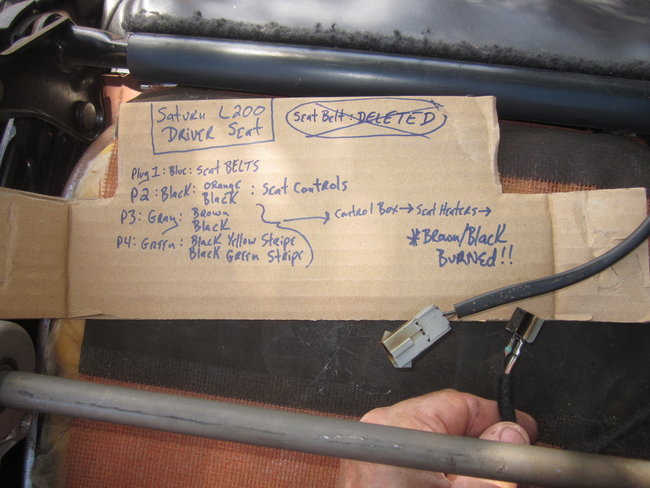 Saturn L200
DRIVER SEAT
Seat Belt: DELETED
Plug 1: Blue: Seat BELTS
P2: Black: ORANGE
Black : Seat Controls
P3: Gray: Brown
Black
→ Control Box → Seat Heaters →
P4: Green: Black Yellow Stripe
Black Green Stripe
*Brown/Black
BURNED!!